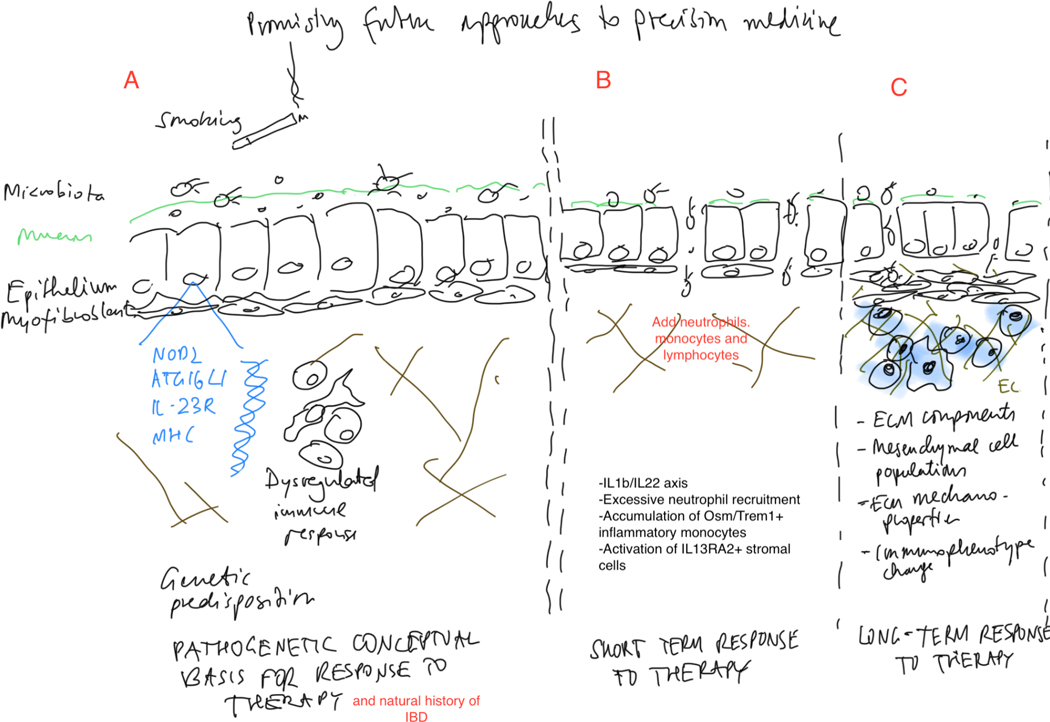 Promising future approaches to precision medicine
A
B
C
Smoking
Microbiota
Mucus
Epithelium
Myofibroblast
NOD2
ATG16L1
IL-23R
MHC
Dysregulated
immune
response
Genetic
predisposition
PATHOGENETIC CONCEPTUAL
BASIS FOR RESPONSE TO
THERAPY and natural history of
IBD
Add neutrophils.
monocytes and
lymphocytes
-IL1b/IL22 axis
-Excessive neutrophil recruitment
-Accumulation of Osm/Trem1+
inflammatory monocytes
-Activation of IL13RA2+ stromal
cells
SHORT TERM RESPONSE
TO THERAPY
EC
- ECM components
- Mesenchymal cell
populations
- ECM mechano-
properties
- Immunophenotype
change
LONG-TERM RESPONSE
TO THERAPY